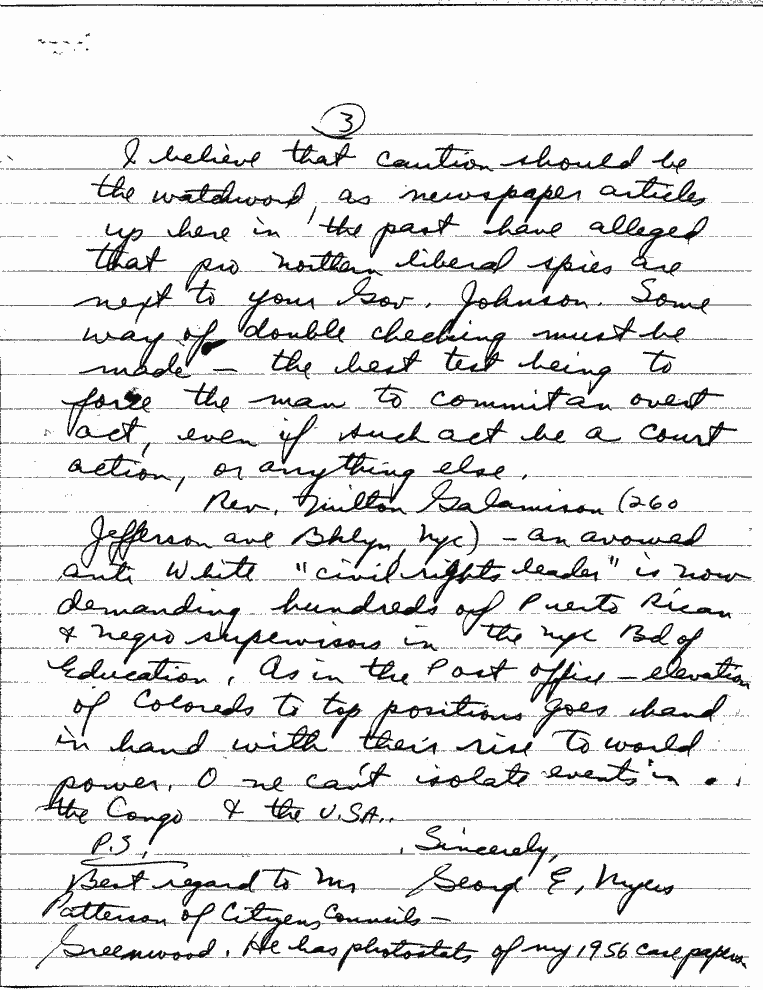 3
I believe that caution should be
the watchword, as newspaper articles
up here in the past have alleged
that pro northern liberal spies are
next to your Gov. Johnson. Some
way of double checking must be
made - the best test being to
force the man to commit an overt
act, even if such act be a court
action, or anything else.
Rev. Milton Galamison (260
Jefferson ave Bklyn, nyc) - an avowed
anti White "civil rights leader" is now
demanding hundreds of Puerto Rican
& negro supervisors in the nyc Bd of
Education. As in the Post office - elevation
of Coloreds to top positions goes hand
in hand with their rise to world
power. One can't isolate events in
the Congo & the U.S.A..
P.S. Sincerely,
Best regard to Mr George E. Myers
Patterson of Citizens Councils -
Greenwood. He has photostats of my 1956 case papers